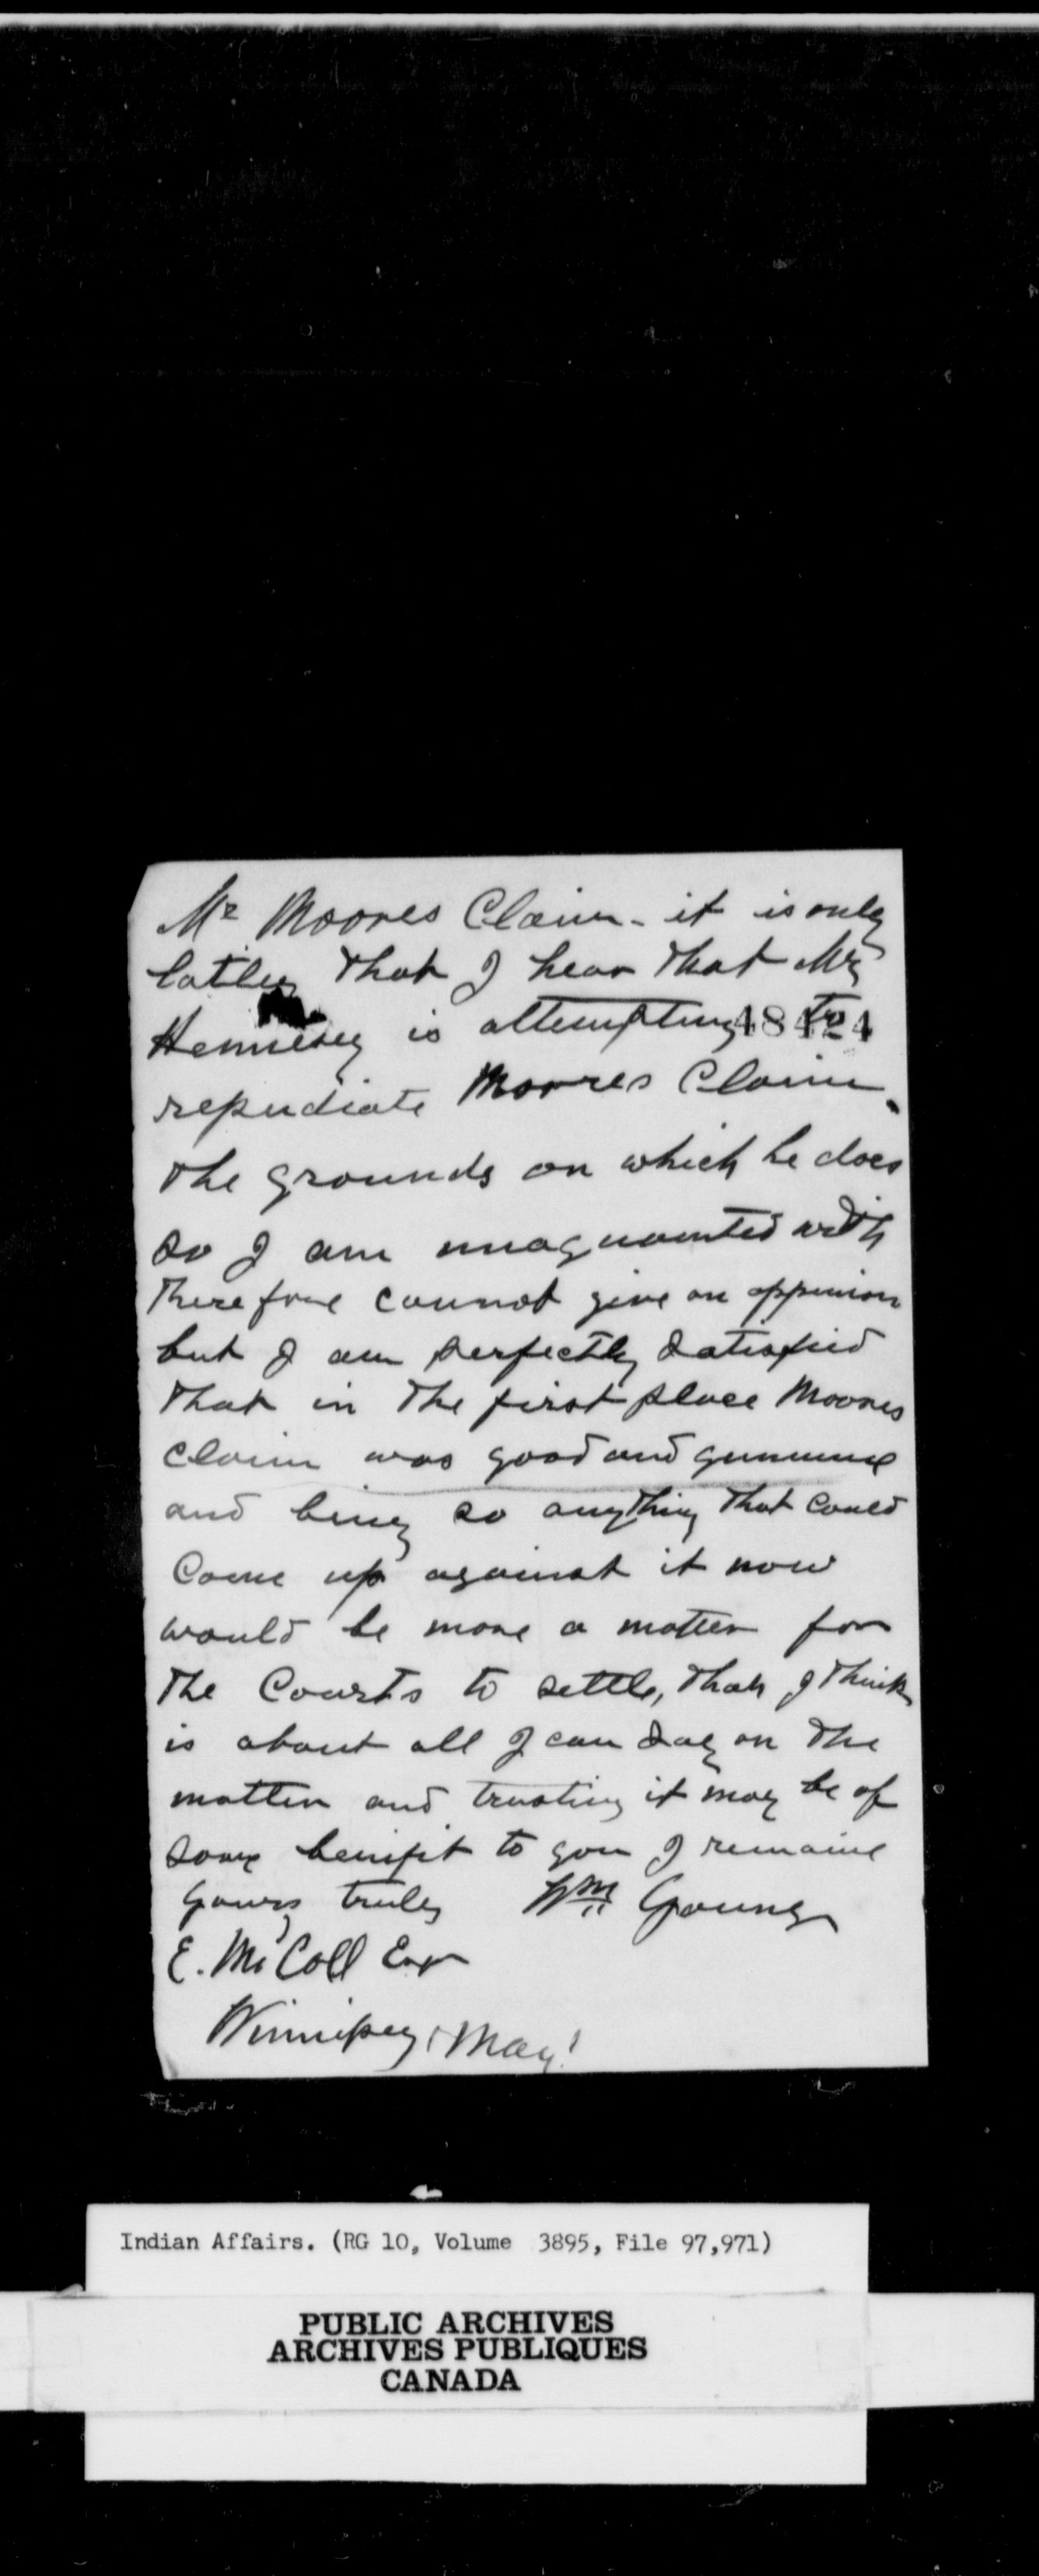 Mr Moores Claim - it is only
latley that I hear that Mr
Hennesey is attempting to
48424
repudiate Moores Claim.
the grounds on which he does
so I am unaquainted with
therefore cannot give an oppinion
but I am perfectly satisfied
that in the first place Moores
claim was good and genuine
and being so anything that could
Come up against it now
would be more a matter for
the Courts to settle, that I think
is about all I can say on the
matter and trusting it may be of
some benifit to you I remaine
yours truley Wm Young
E. McColl Esqr
Winnipeg, Man!
Indian Affairs. (RG 10, Volume 3895, File 97,971)
PUBLIC ARCHIVES
ARCHIVES PUBLIQUES
CANADA